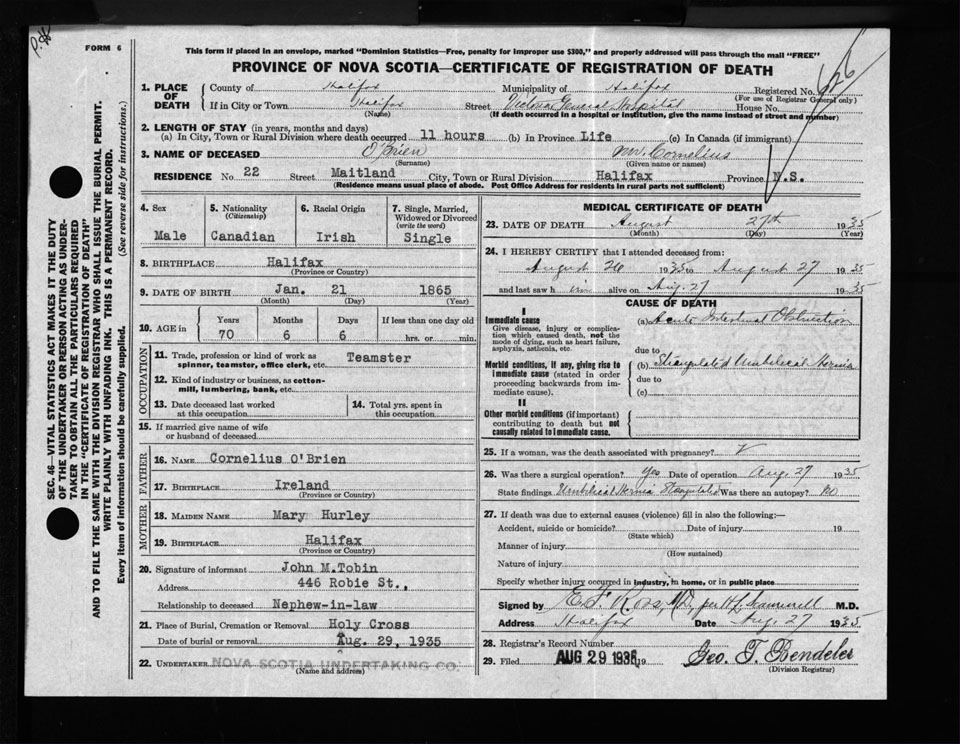 FORM 6
626
This form if placed in an envelope, marked "Dominion Statistics—Free, penalty for improper use $300," and properly addressed will pass through the mail "FREE"
PROVINCE OF NOVA SCOTIA—CERTIFICATE OF REGISTRATION OF DEATH
SEC. 46—VITAL STATISTICS ACT MAKES IT THE DUTY
OF THE UNDERTAKER OR PERSON ACTING AS UNDER-
TAKER TO OBTAIN ALL THE PARTICULARS REQUIRED
IN THE "CERTIFICATE OF REGISTRATION OF DEATH"
AND TO FILE THE SAME WITH THE DIVISION REGISTRAR WHO SHALL ISSUE THE BURIAL PERMIT.
WRITE PLAINLY WITH UNFADING INK. THIS IS A PERMANENT RECORD.
Every item of information should be carefully supplied. (See reverse side for instructions.)
1. PLACE OF DEATH
County of Halifax Municipality of Halifax Registered No.
(For use of Registrar General only)
If in City or Town Halifax Street Victoria General Hospital House No.
(Name) (If death occurred in a hospital or institution, give the name instead of street and number)
2. LENGTH OF STAY (in years, months and days)
(a) In City, Town or Rural Division where death occurred 11 hours (b) In Province Life (c) In Canada (if immigrant)
3. NAME OF DECEASED O'Brien Mr. Cornelius
(Surname) (Given name or names)
RESIDENCE No. 22 Street Maitland City, Town or Rural Division Halifax Province N.S.
(Residence means usual place of abode. Post Office Address for residents in rural parts not sufficient)
4. Sex
Male
5. Nationality
(Citizenship)
Canadian
6. Racial Origin
Irish
7. Single, Married,
Widowed or Divorced
(write the word)
Single
8. BIRTHPLACE Halifax
(Province or Country)
9. DATE OF BIRTH Jan. 21 1865
(Month) (Day) (Year)
10. AGE in
Years Months Days If less than one day old
70 6 6 hrs. or min.
OCCUPATION
11. Trade, profession or kind of work as
spinner, teamster, office clerk, etc. Teamster
12. Kind of industry or business, as cotton-
mill, lumbering, bank, etc.
13. Date deceased last worked
at this occupation
14. Total yrs. spent in
this occupation
15. If married give name of wife
or husband of deceased
FATHER
16. NAME Cornelius O'Brien
17. BIRTHPLACE Ireland
(Province or Country)
MOTHER
18. MAIDEN NAME Mary Hurley
19. BIRTHPLACE Halifax
(Province or Country)
20. Signature of informant John M.Tobin
Address 446 Robie St.,
Relationship to deceased Nephew-in-law
21. Place of Burial, Cremation or Removal Holy Cross
Date of burial or removal Aug. 29, 1935
22. UNDERTAKER NOVA SCOTIA UNDERTAKING CO.
(Name and address)
MEDICAL CERTIFICATE OF DEATH
23. DATE OF DEATH August 27th 1935
(Month) (Day) (Year)
24. I HEREBY CERTIFY that I attended deceased from:
August 26 1935 to August 27 1935
and last saw him alive on Aug. 27 1935
CAUSE OF DEATH
I
Immediate cause
Give disease, injury or complica-
tion which caused death, not the
mode of dying, such as heart failure,
asphyxia, asthenia, etc.
(a) Acute Intestinal Obstruction
due to
Morbid conditions, if any, giving rise to
immediate cause (stated in order
proceeding backwards from im-
mediate cause).
(b) Strangulated Umbilical Hernia
due to
(c)
II
Other morbid conditions (if important)
contributing to death but not
causally related to immediate cause.
25. If a woman, was the death associated with pregnancy?
26. Was there a surgical operation? Yes Date of operation Aug. 27 1935
State findings Umbilical Hernia Strangulated Was there an autopsy? no
27. If death was due to external causes (violence) fill in also the following:—
Accident, suicide or homicide? Date of injury 19
(State which)
Manner of injury
(How sustained)
Nature of injury
Specify whether injury occurred in industry, in home, or in public place
Signed by E. F. Ross, M.D. per M.D.
Address Halifax Date Aug. 27 1935
28. Registrar's Record Number
29. Filed AUG 29 1935 19 Geo. T. Bendeler
(Division Registrar)